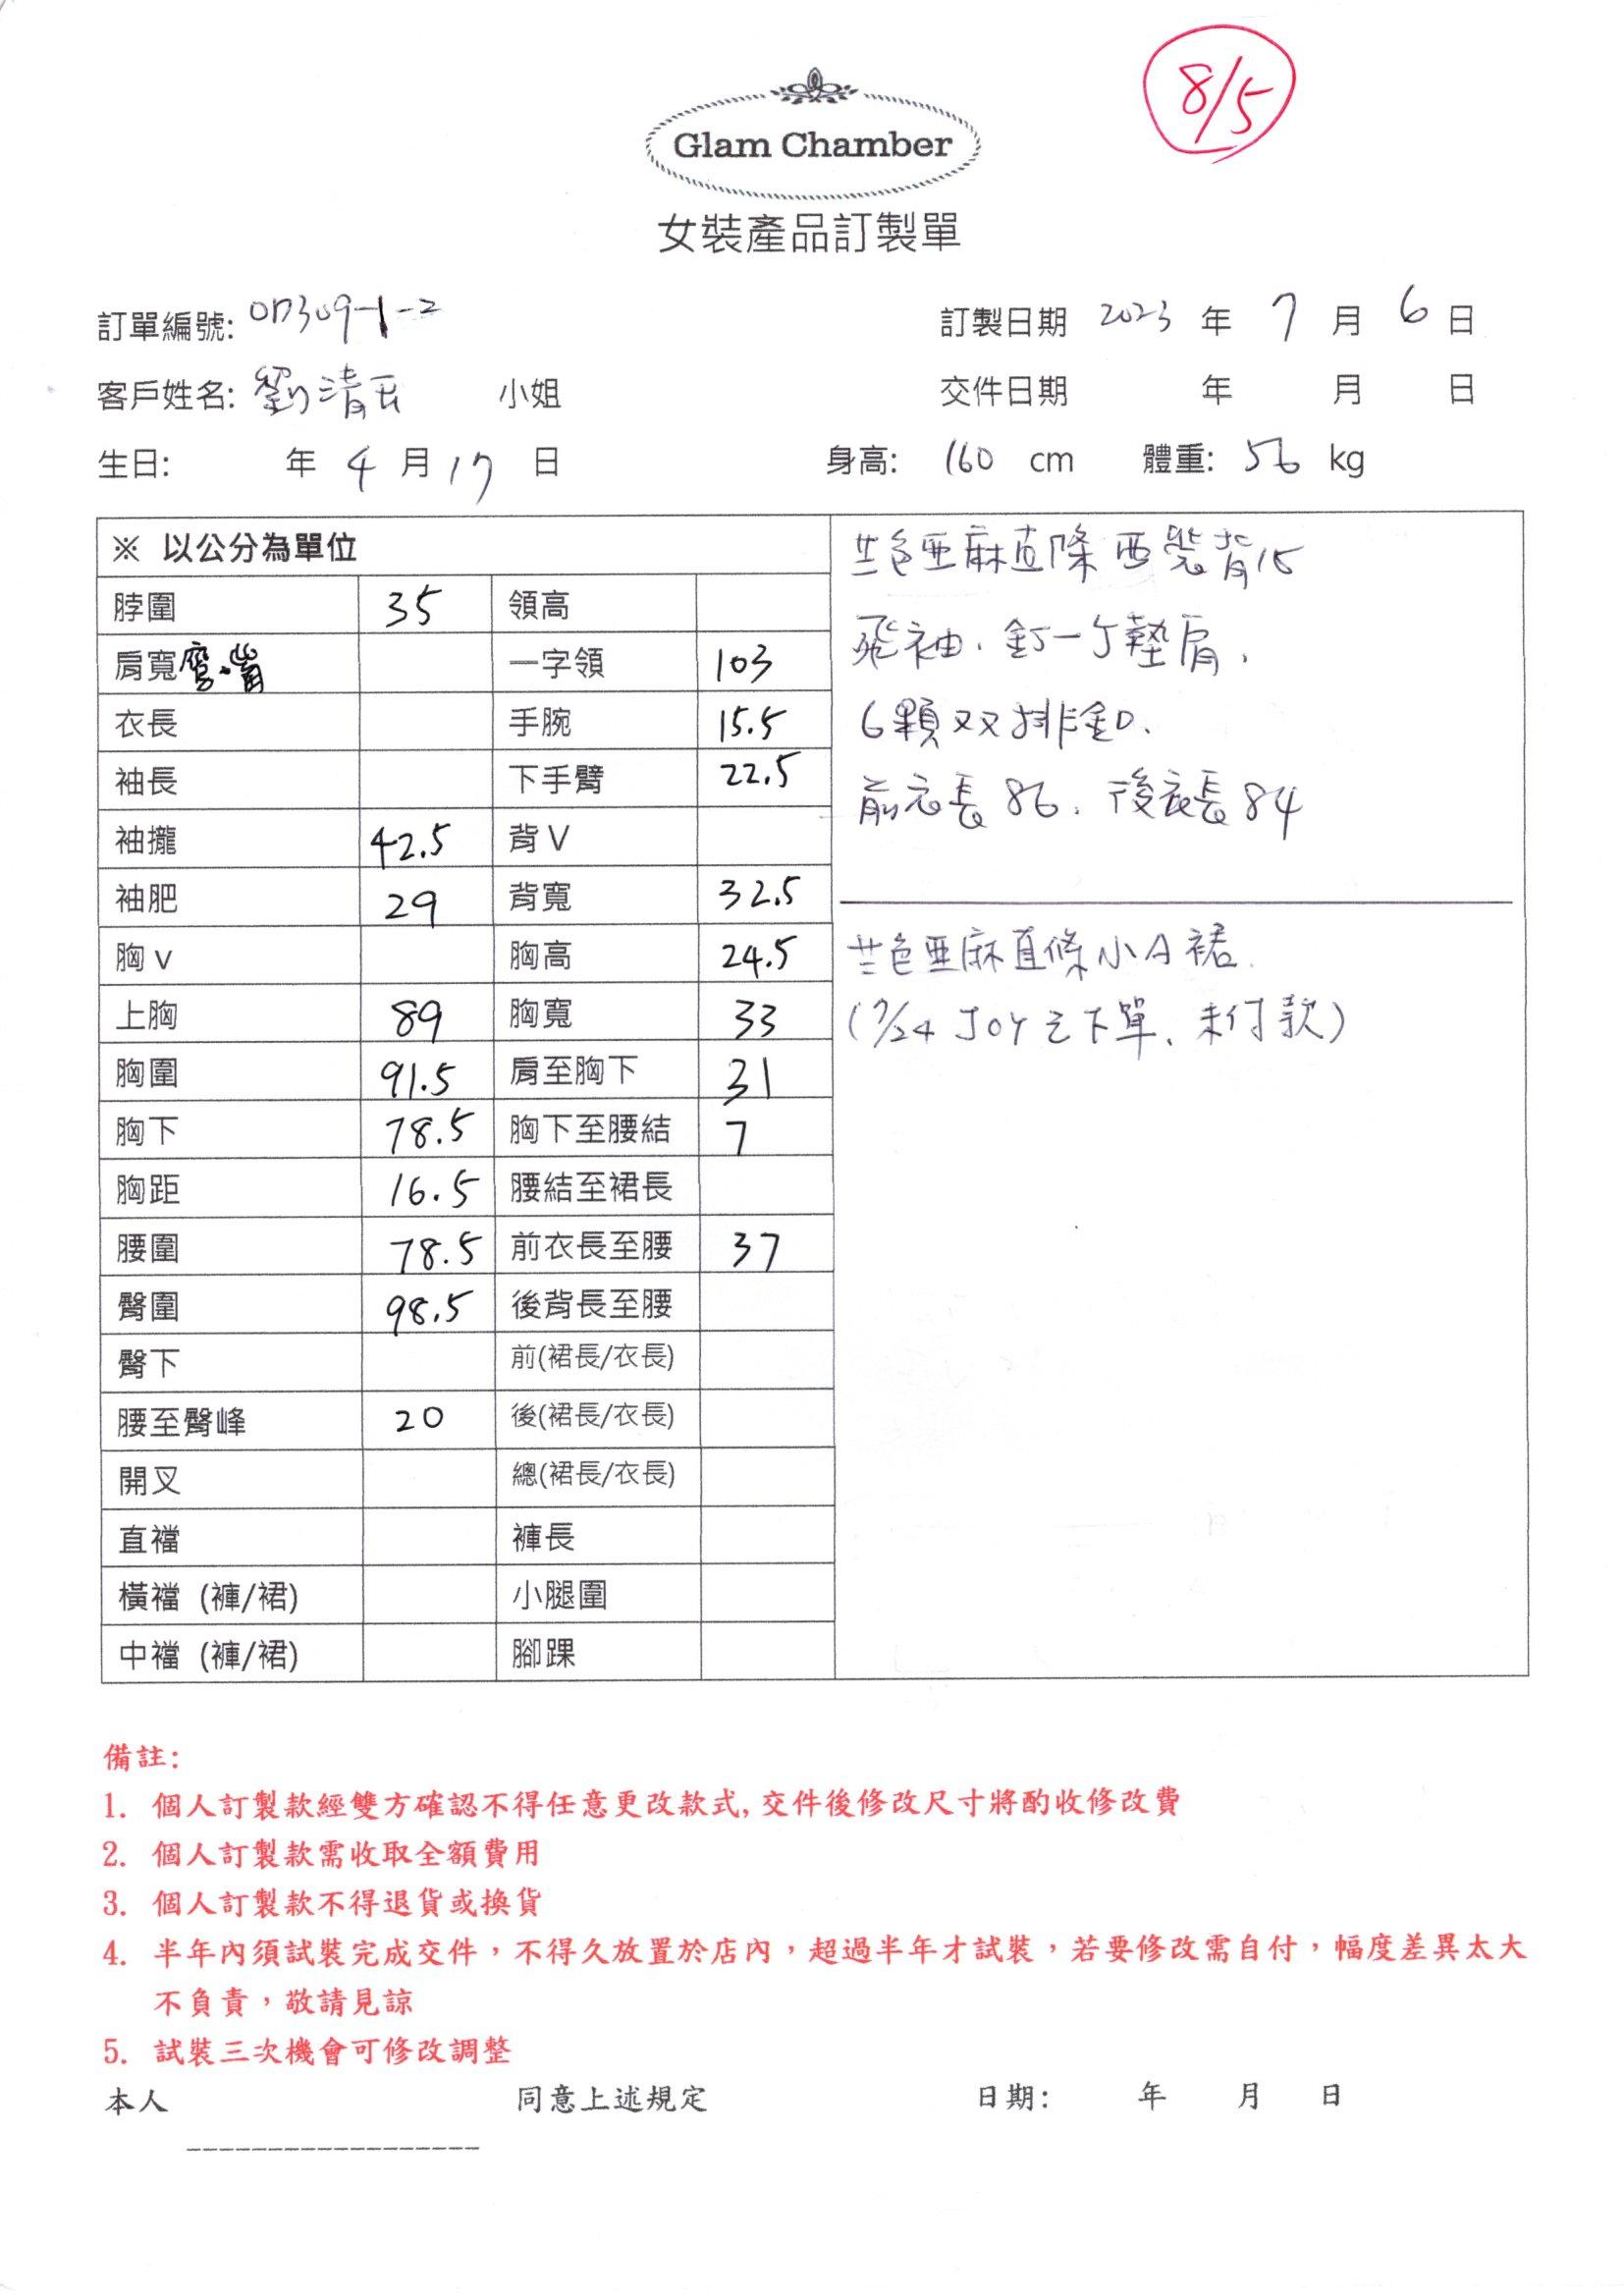 8/5
Glam Chamber
女裝產品訂製單
訂單編號: 017309-1-2
訂製日期 2023 年 7 月 6 日
客戶姓名: 劉清 小姐
交件日期 年 月 日
生日: 年 4 月 17 日
身高: 160 cm 體重: 56 kg
※ 以公分為單位
脖圍 35 領高
肩寬 一字領 103
衣長 手腕 15.5
袖長 下手臂 22.5
袖攏 42.5 背V
袖肥 29 背寬 32.5
胸v 胸高 24.5
上胸 89 胸寬 33
胸圍 91.5 肩至胸下 31
胸下 78.5 胸下至腰結 7
胸距 16.5 腰結至裙長
腰圍 78.5 前衣長至腰 37
臀圍 98.5 後背長至腰
臀下 前(裙長/衣長)
腰至臀峰 20 後(裙長/衣長)
開叉 總(裙長/衣長)
直襠 褲長
橫襠 (褲/裙) 小腿圍
中襠 (褲/裙) 腳踝
色亞麻直條西裝背
飛袖、釘一丁墊肩、
6顆双排釦、
前衣長86、後衣長84
色亞麻直條小A裙
(7/24 JOY 已下單、未付款)
備註:
1. 個人訂製款經雙方確認不得任意更改款式, 交件後修改尺寸將酌收修改費
2. 個人訂製款需收取全額費用
3. 個人訂製款不得退貨或換貨
4. 半年內須試裝完成交件，不得久放置於店內，超過半年才試裝，若要修改需自付，幅度差異太大
不負責，敬請見諒
5. 試裝三次機會可修改調整
本人 同意上述規定 日期: 年 月 日